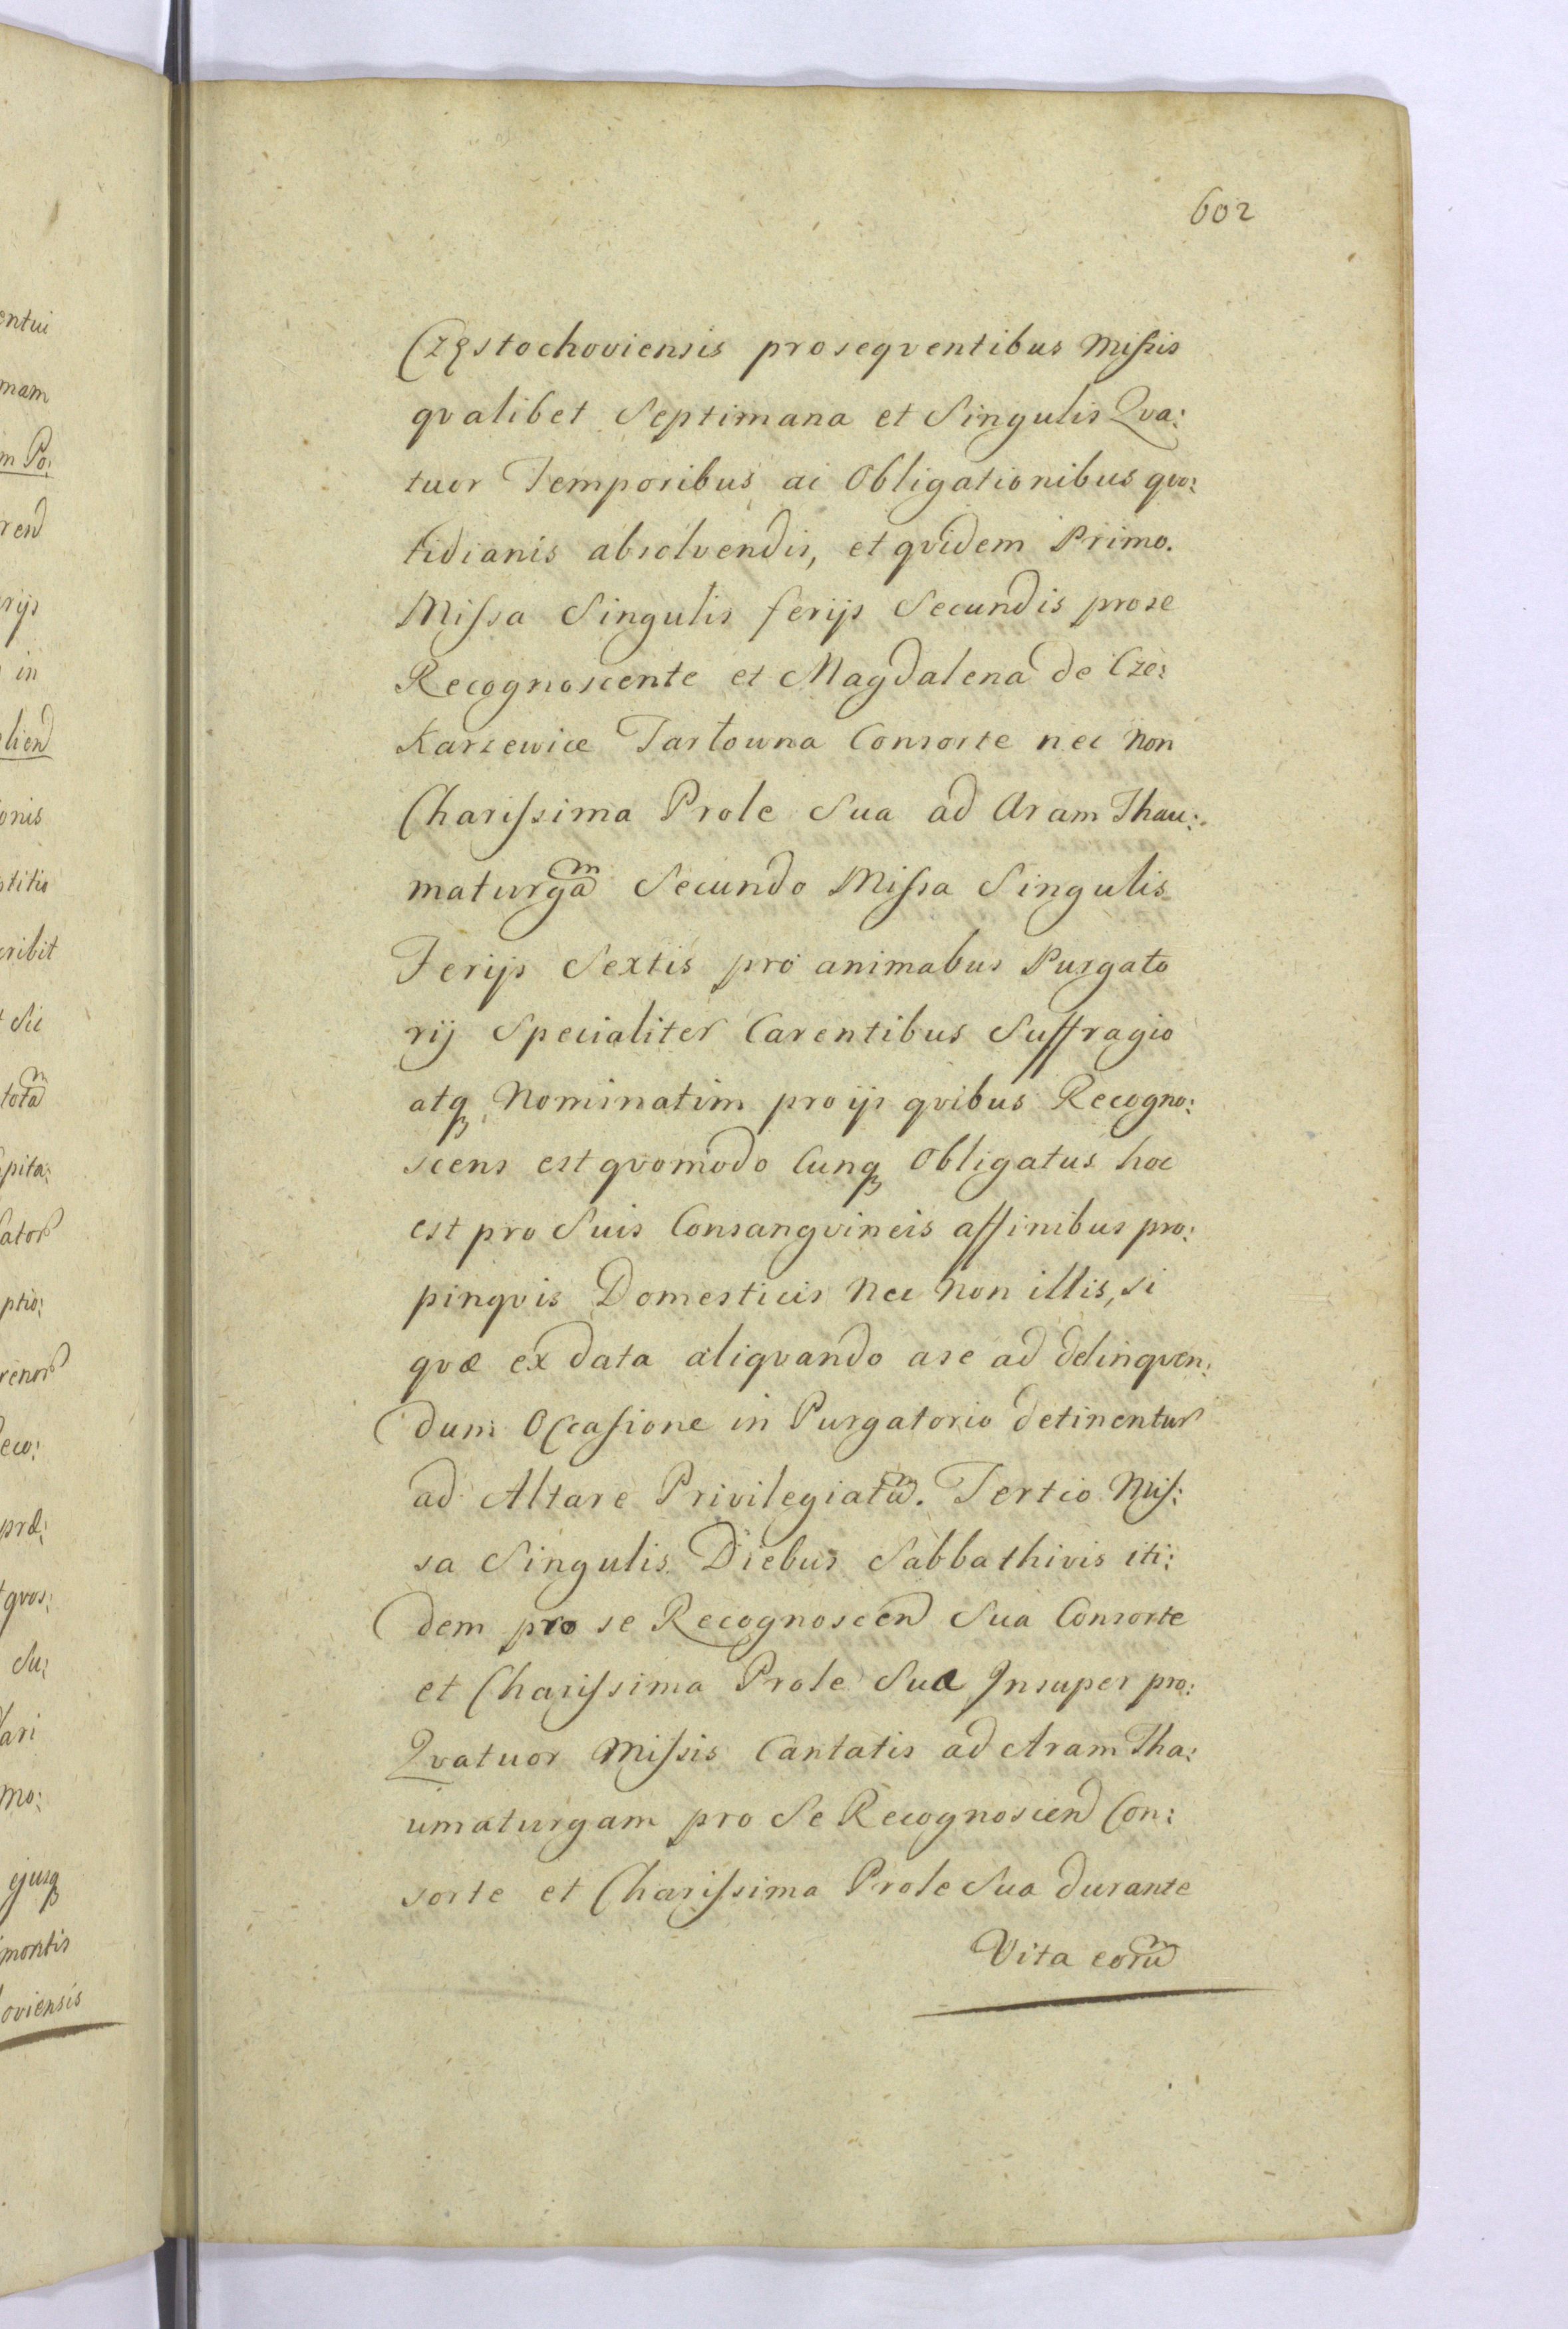 602
Częstochoviensis proseqventibus Missis
qvalibet Septimana et Singulis Qva:
tuor Temporibus ac Obligationibus qvo:
tidianis absolvendis, et qvidem Primo.
Missa Singulis ferijs Secundis pro se
Recognoscente et Magdalena de Cze:
karzewice Tarłowna Consorte nec non
Charissima Prole Sua ad Aram Thau:
maturgam̃ Secundo Missa Singulis
Ferijs Sextis pro animabus Purgato
rij Specialiter Carentibus Suffragio
atq́ Nominatim pro ijs qvibus Recogno:
scens est qvomodo Cunq́ Obligatus hoc
est pro Suis Consangvineis affinibus pro:
pinqvis Domesticis Nec non illis, si
qvæ ex data aliqvando a se ad delinqven:
dum Occasione in Purgatorio detinentur
ad Altare Privilegiatũ. Tertio Mis:
sa Singulis Diebus Sabbathivis iti:
dem pro se Recognoscen Sua Consorte
et Charissima Prole Sua Insuper pro:
Qvatuor Missis Cantatis ad Aram Tha:
umaturgam pro Se Recognoscen Con:
sorte et Charissima Prole Sua durante
Vita eorũ
entui
mam
m Po:
rend
rijs
in
elien
onis
ptitio
cribit
Sic
totã
pita:
ptio:
eco:
præ:
qvos:
Su:
ari
mo:
ejusq́
montis
oviensis